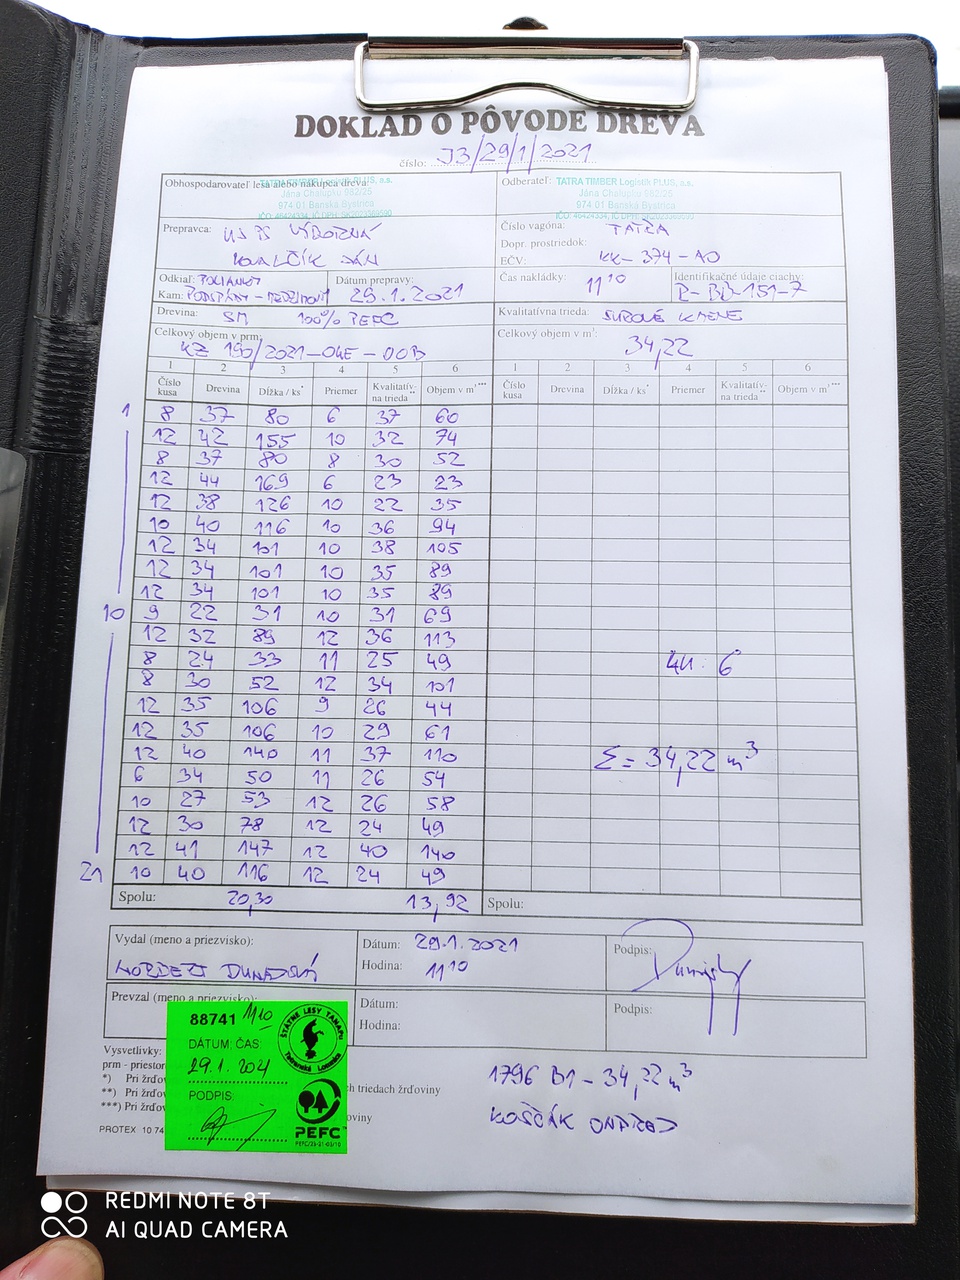 DOKLAD O PÔVODE DREVA
číslo: J3/29/1/2021
Obhospodarovateľ lesa alebo nákupca dreva:
TATRA TIMBER Logistik PLUS, a.s.
Jána Chalupku 982/25
974 01 Banská Bystrica
IČO: 46424334, IČ DPH: SK2023369590
Odberateľ: TATRA TIMBER Logistik PLUS, a.s.
Jána Chalupku 982/25
974 01 Banská Bystrica
IČO: 46424334, IČ DPH: SK2023369590
Prepravca:
KOVALČÍK JÁN
Číslo vagóna: TATRA
Dopr. prostriedok:
EČV: KK-374-AO
Odkiaľ: POLIANKY
Kam: PODSPÁDY -
Dátum prepravy: 29.1.2021
Čas nakládky: 11 10
Identifikačné údaje ciachy: R-BD-151-7
Drevina: SM 100% PEFC
Kvalitatívna trieda: SUROVÉ KMENE
Celkový objem v prm:
KZ 190/2021-04E-00B
Celkový objem v m³: 34,22
1 2 3 4 5 6 1 2 3 4 5 6
Číslo kusa Drevina Dĺžka / ks* Priemer Kvalitatív-na trieda** Objem v m³*** Číslo kusa Drevina Dĺžka / ks* Priemer Kvalitatív-na trieda** Objem v m³***
1 8 37 80 6 37 60
12 42 155 10 32 74
8 37 80 8 30 52
12 44 169 6 23 23
12 38 126 10 22 35
10 40 116 10 36 94
12 34 101 10 38 105
12 34 101 10 35 89
12 34 101 10 35 89
10 9 22 31 10 31 69
12 32 89 12 36 113
8 24 33 11 25 49 4M: 6
8 30 52 12 34 101
12 35 106 9 26 44
12 35 106 10 29 61
12 40 140 11 37 110 Σ = 34,22 m³
6 34 50 11 26 54
10 27 53 12 26 58
12 30 78 12 24 49
12 41 147 12 40 140
21 10 40 116 12 24 49
Spolu: 20,30 13,92 Spolu:
Vydal (meno a priezvisko):
Dátum: 29.1.2021
Hodina: 11 10
Podpis:
Prevzal (meno a priezvisko):
Dátum:
Hodina:
Podpis:
88741 1110
DÁTUM: ČAS:
29.1.2021
PODPIS:
ŠTÁTNE LESY TANAPu
Tatranská Lomnica
PEFC
PEFC/25-21-03/10
Vysvetlivky:
prm - priestor
*) Pri žrďo
ch triedach žrďoviny
**) Pri žrďov
***) Pri žrďov
oviny
PROTEX 10 74
1796 B1 - 34,22 m³
KOŠČÁK ONDREJ
REDMI NOTE 8T
AI QUAD CAMERA